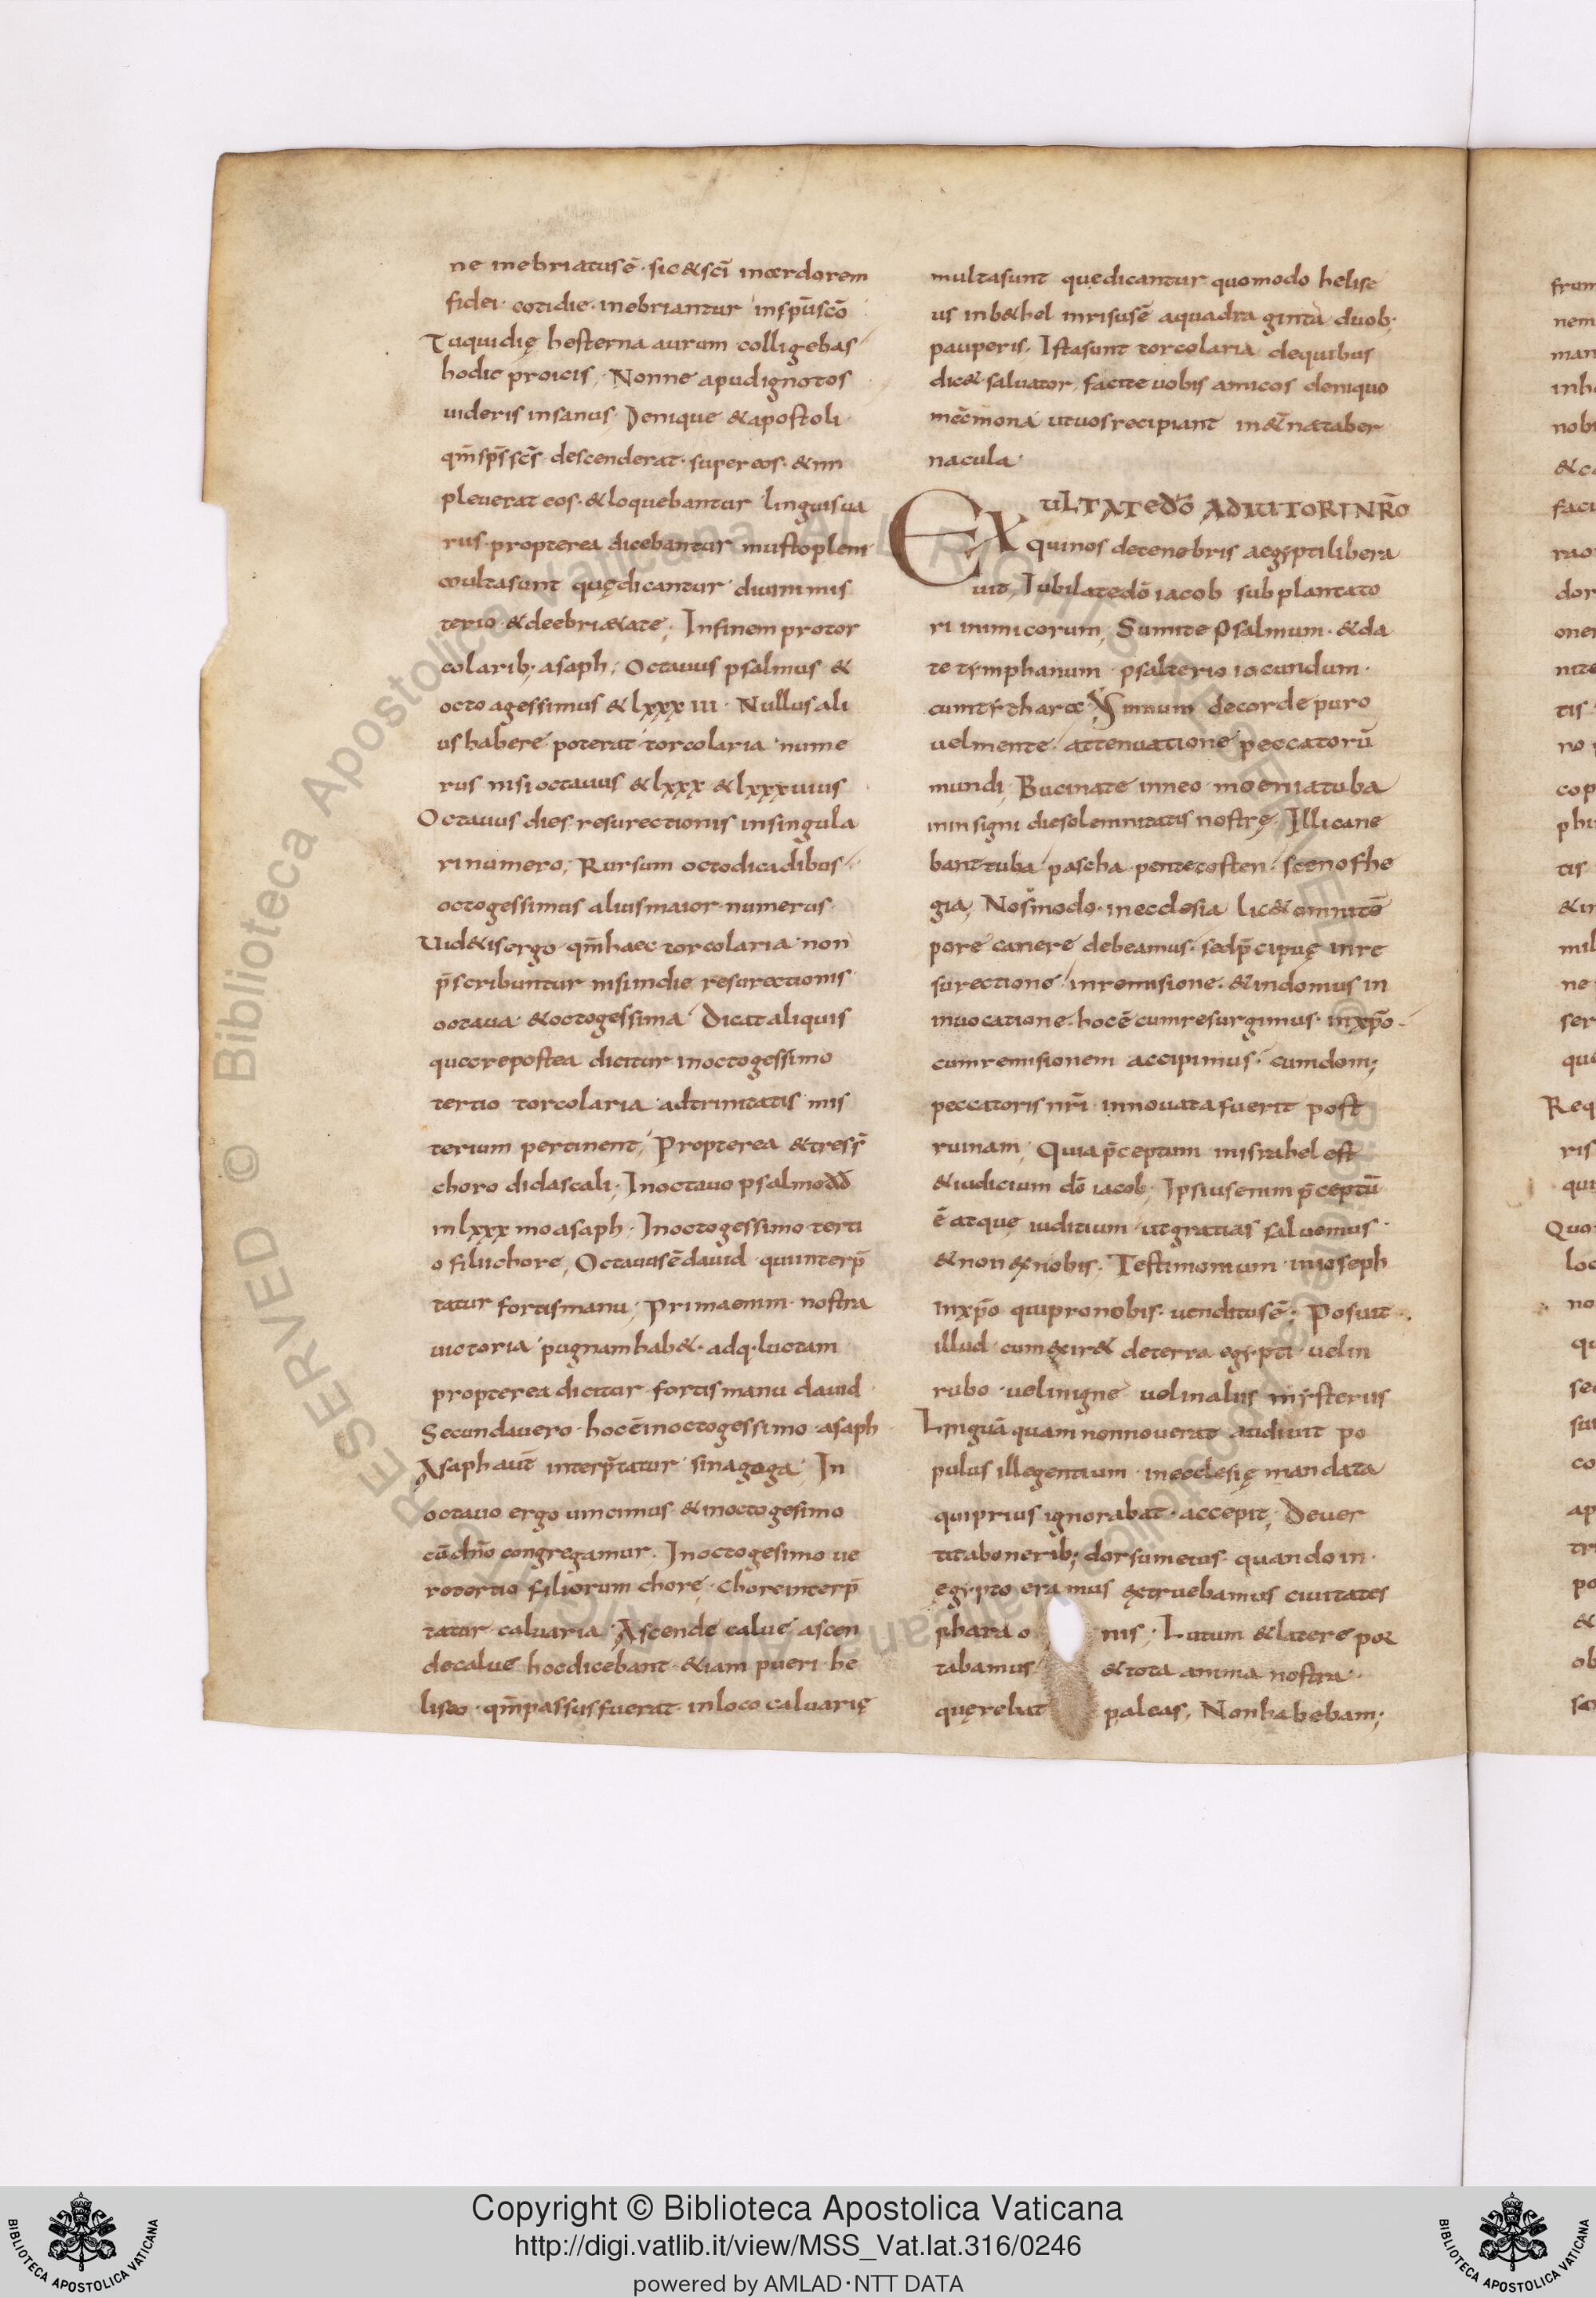 ne inebriatus ē· sic & sc̄i incerdorem
fidei· cotidie· inebriantur in sp̄u sc̄o
Tu qui die hesterna aurum colligebas
hodie proicis, Nonne apud ignotos
uideris insanus· Denique & apostoli·
qm̄ sp̄s sc̄s descenderat· super eos· & im
pleuerat eos· & loquebantur linguis ua
rus· propterea dicebantur musto pleni
multa sunt quę dicantur diuini mis
terio & de ebri&ate; In finem pro tor
colarib; asaph; Octauus psalmus &
octoagessimus & lxxx iii· Nullus ali
us habere poterat torcolaria nume
rus nisi octauus & lxxx & lxxxuius
Octauus dies resurectionis in singula
ri numero; Rursum octo dicadibus
octogessimus alius maior numerus·
Uid&is ergo qm̄ haec torcolaria non
p̄scribuntur nisi in die resurectionis
octaua & octogessima Dicat aliquis
quare postea dicitur in octogessimo
tertio torcolaria ad trinitatis mis
terium pertinent, Propterea & tres s̄
choro didascali; In octauo psalmo dd̄
in lxxx mo asaph· In octogessimo terti
o filii chore, Octauus ē dauid qui interp̄
tatur fortis manu, Prima enim nostra
uictoria pugnam hab&· adq· luctam
propterea dicitur fortis manu dauid
Secunda uero· hoc ē in octogessimo asaph
Asaph aut̄ interp̄tatur sinagoga· In
octauo ergo uincimus & in octogesimo
cū dn̄o congregamur· In octogesimo ue
ro tertio filiorum chore· Chore interp̄
tatur caluaria· Ascende calue ascen
de calue· hoc dicebant &iam pueri he
liseo· qm̄ passus fuerat in loco caluarię
multa sunt quę dicantur quomodo helise
us in b&hel inrisus ē a quadra ginta duob;
pueris· Ista sunt torcolaria de quibus
dic& saluator, facite uobis amicos de niquo
mēmona ut uos recipiant in &̄na taber
nacula·
EXULTATE DO ADIUTORI NRO
qui nos de tenebris aegypti libera
uit, Iubilate dō iacob sub plantato
ri inimicorum, Sumite psalmum· & da
te tymphanum psalterio iocundum·
cum cythara Ymnum de corde puro
uel mente attenuatione peccatorū
mundi, Bucinate in neo moenia tuba
in insigni die solemnitatis nostrę· Illi cane
bant tuba pascha pentecosten scenofhe
gia, Nos modo· in ecclesia lic& omni tē
pore canere debeamus· sed p̄cipuę in re
surectione in remisione· & in domus in
inuocatione· hoc ē cum resurgimus in xp̄o·
cum remisionem accipimus· cum dom;
peccatoris nr̄i innouata fuerit post
ruinam, Quia p̄ceptum in israhel est
& iudicium dō iacob; Ipsius enim p̄ceptū
ē atque iuditium ut gratias saluemus·
& non ex nobis· Testimonium in ioseph
in xp̄o qui pro nobis· uenditus ē· Posuit
illud cum exir& de terra egypti uel in
rubo uel in igne uel in aliis mysteriis
Linguā quam non nouerat audiuit po
pulus ille gentium in ecclesię mandata
qui prius ignorabat· accepit, Deuer
tit ab onerib; dorsum eius quando in·
egypto eramus extruebamus ciuitates
pharao nis; Lutum & latere por
tabamus & tota anima nostra·
querebat paleas, Non habebam;
frum
nem
man
inh
nobi
& c
faci
rao
dor
oner
nite
tis
no
cop
phi
tis
& in
mil
ne
ser
que
Req
ris
qui
Quo
loc
no
qu
se
su
co
ap
tr
po
&
ob
Copyright © Biblioteca Apostolica Vaticana
http://digi.vatlib.it/view/MSS_Vat.lat.316/0246
powered by AMLAD·NTT DATA
BIBLIOTECA APOSTOLICA VATICANA
BIBLIOTECA APOSTOLICA VATICANA